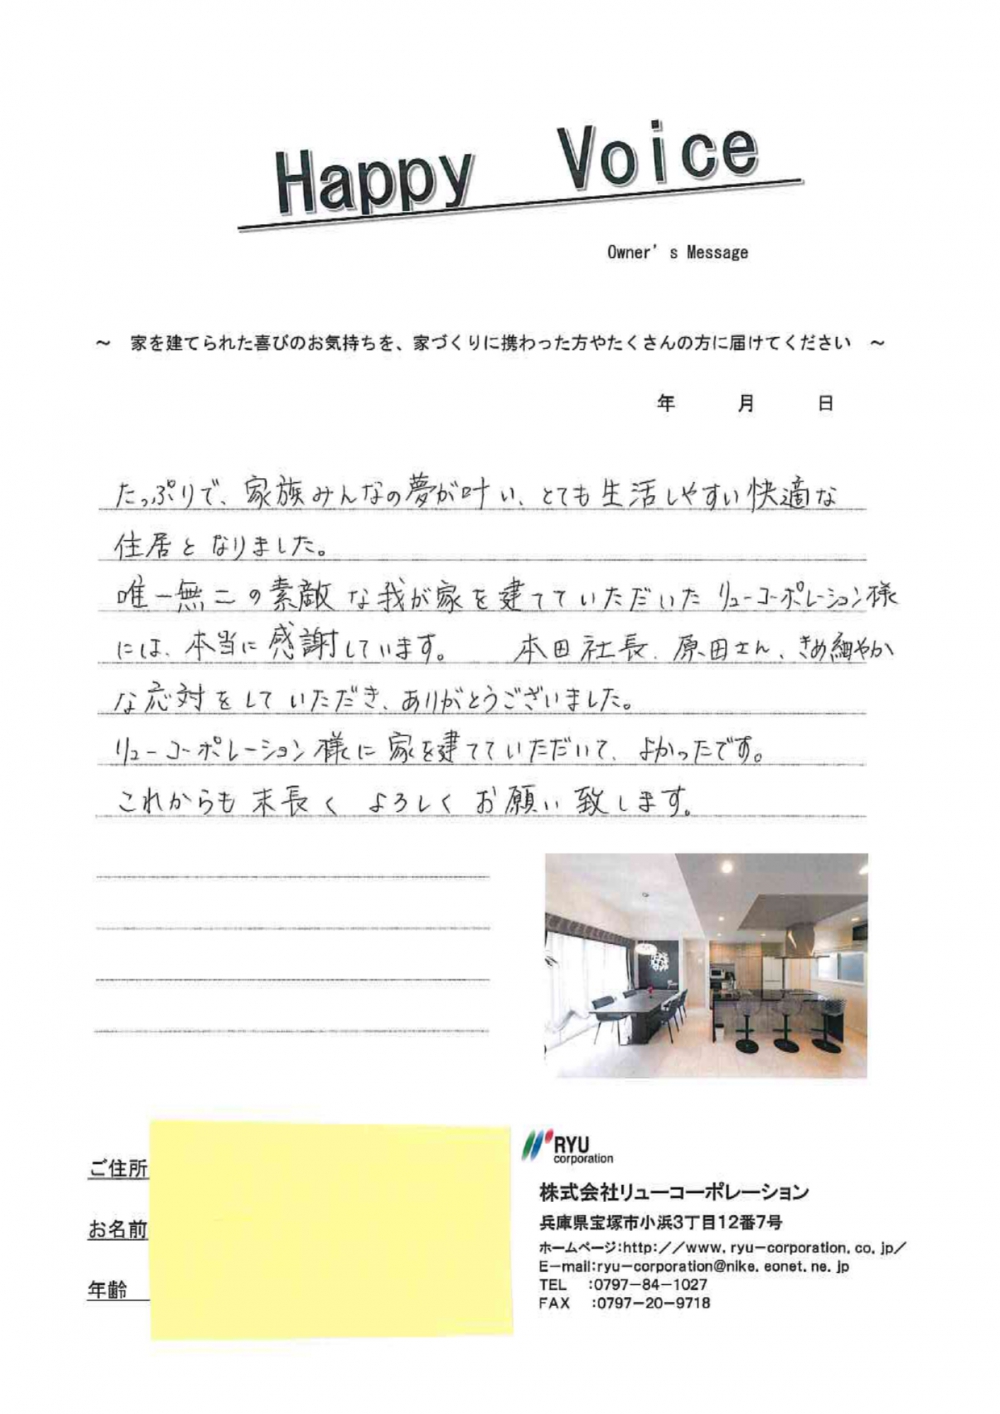 Happy Voice
Owner's Message
～ 家を建てられた喜びのお気持ちを、家づくりに携わった方やたくさんの方に届けてください ～
年 月 日
たっぷりで、家族みんなの夢が叶い、とても生活しやすい快適な
住居となりました。
唯一無二の素敵な我が家を建てていただいたリューコーポレーション様
には、本当に感謝しています。 本田社長、原田さん、きめ細やか
な応対をしていただき、ありがとうございました。
リューコーポレーション様に家を建てていただいて、よかったです。
これからも末長くよろしくお願い致します。
ご住所
お名前
年齢
RYU
corporation
株式会社リューコーポレーション
兵庫県宝塚市小浜3丁目12番7号
ホームページ:http://www.ryu-corporation.co.jp/
E-mail:ryu-corporation@nike.eonet.ne.jp
TEL :0797-84-1027
FAX :0797-20-9718